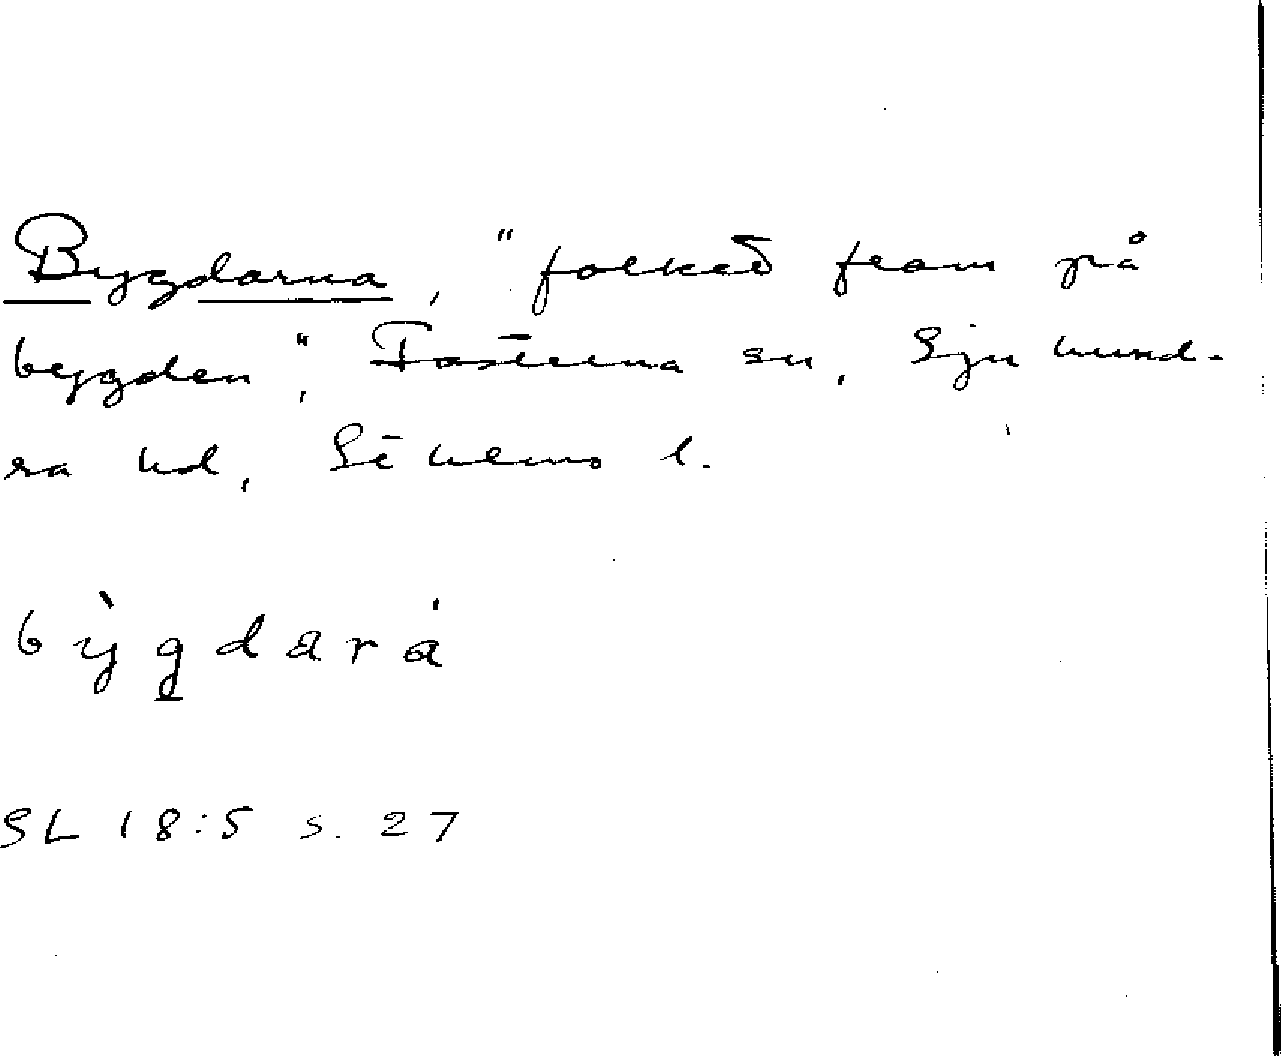 Bygdarna, "folket fram på
bygden", Fasterna sn, Sjuhund-
ra hd, Sthlms l.
bỳgdarȧ
SL 18:5 s. 27